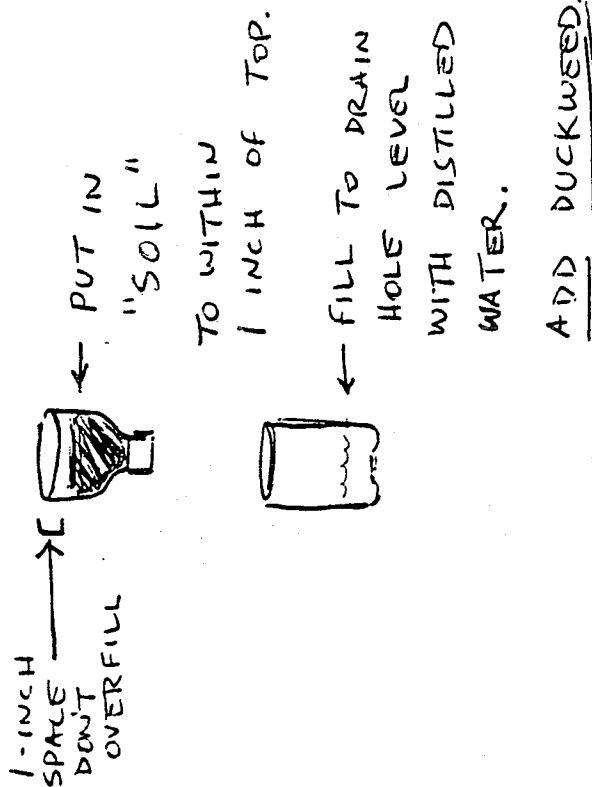 1-INCH
SPACE
DON'T
OVERFILL
PUT IN
"SOIL"
TO WITHIN
1 INCH OF TOP.
FILL TO DRAIN
HOLE LEVEL
WITH DISTILLED
WATER.
ADD DUCKWEED.